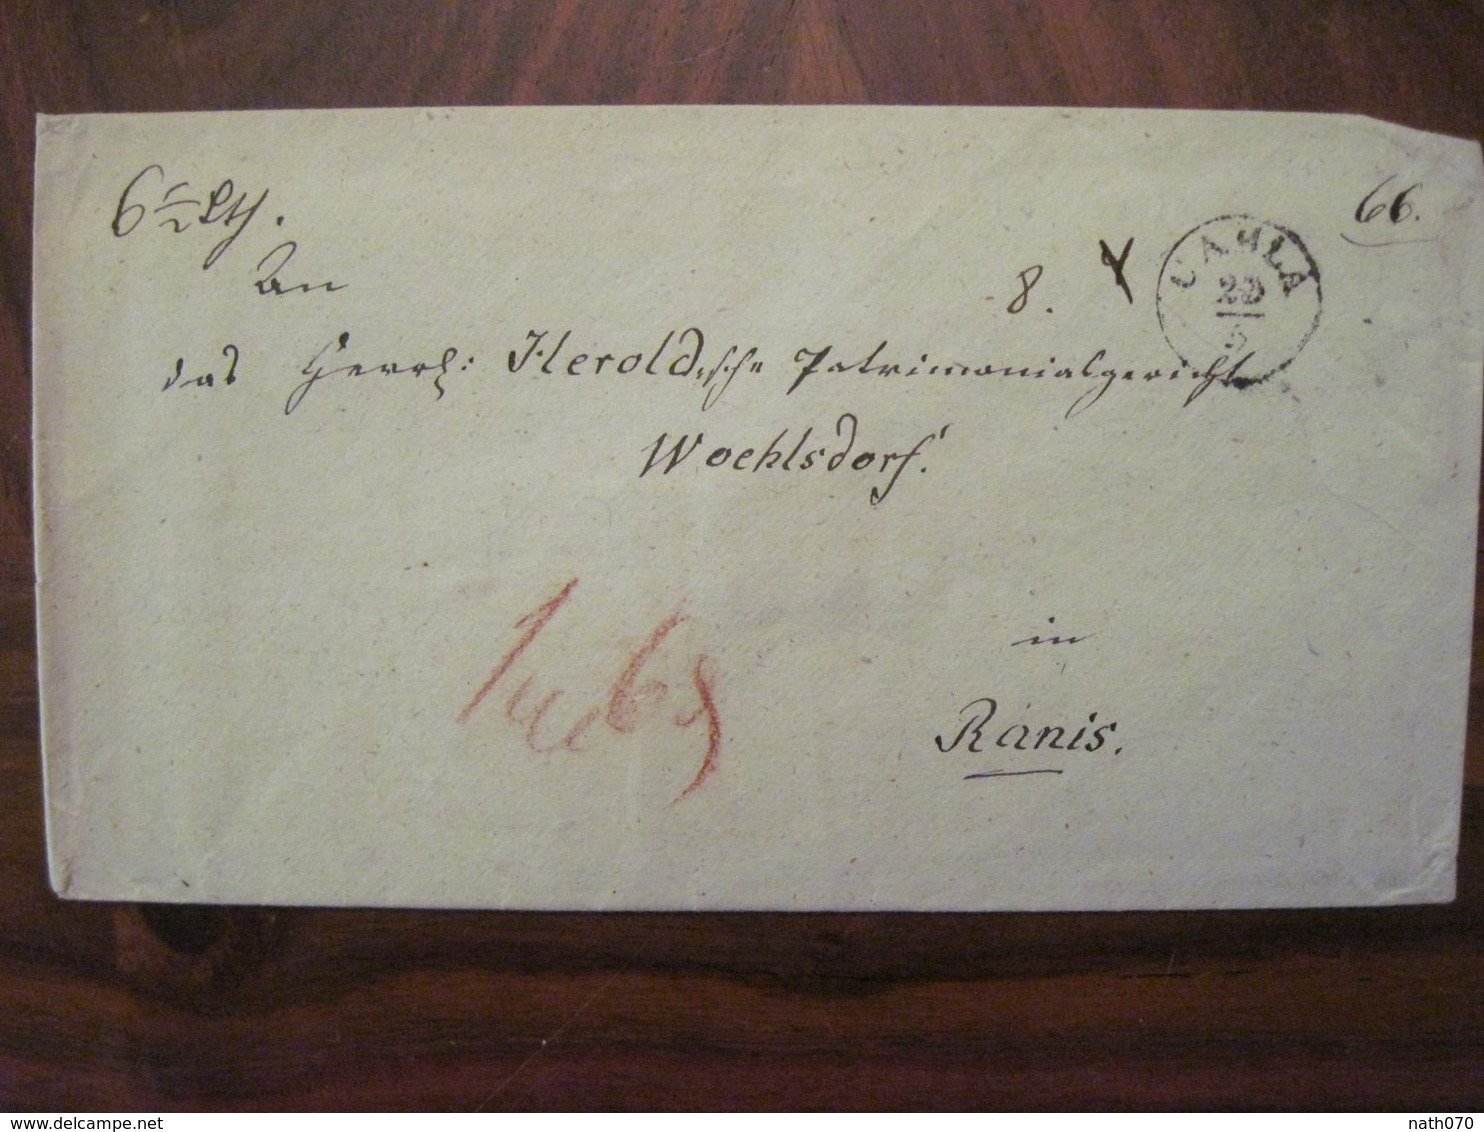 6 1/2 Lth.
66.
CAHLA
22
5
An
8.
das Herrl: Herold'sche Patrimonialgericht
Woehlsdorf.
in
Ranis.
delcampe.net
nath070